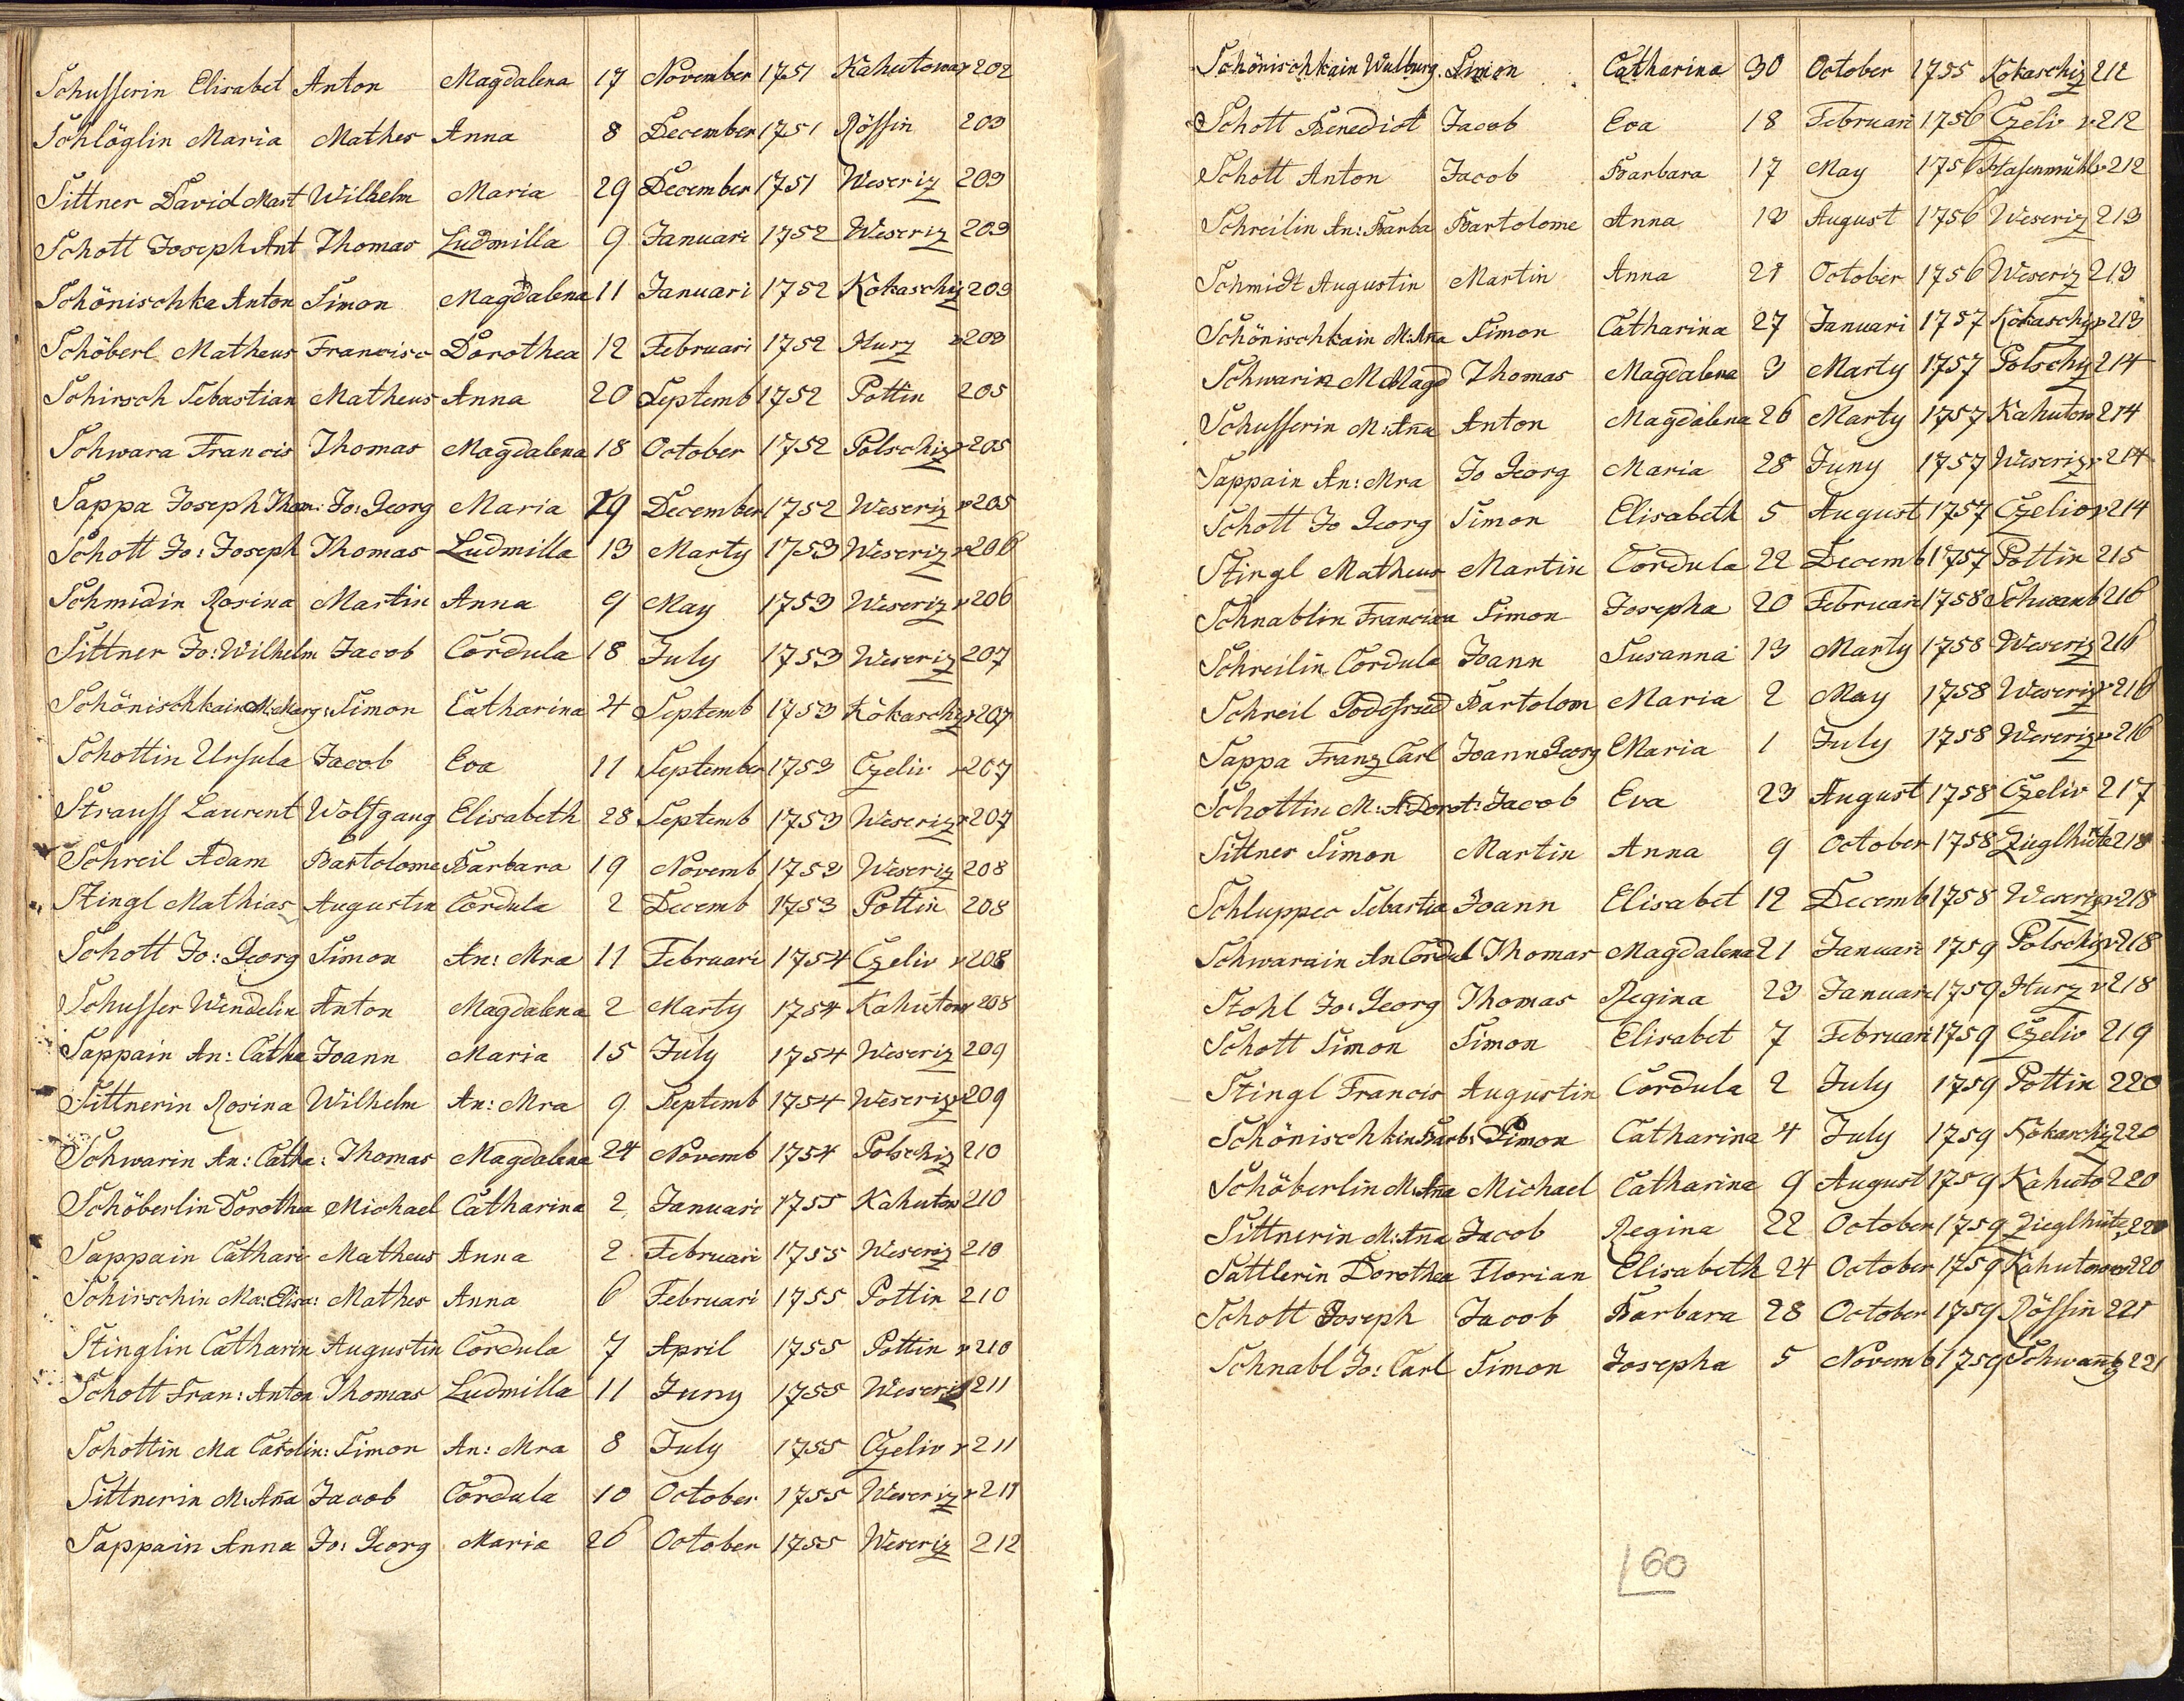 Schusserin Elisabet Anton Magdalena 17 November 1751 Kahutowa v 202
Schlöglin Maria Mathes Anna 8 December 1751 Rössin 203
Sittner David Mart Wilhelm Maria 29 December 1751 Weseriz 203
Schott Joseph Ant Thomas Ludmilla 9 Januari 1752 Weseriz 203
Schönischka Anton Simon Magdalena 11 Januari 1752 Kokaschiz 203
Schöberl Matheus Francisc Dorothea 12 Februari 1752 Hurz v 203
Schirsch Sebastian Matheus Anna 20 Septemb 1752 Pottin 205
Schwara Francis Thomas Magdalena 18 October 1752 Polschiz v 205
Sappa Joseph Thom: Jo: Georg Maria 29 December 1752 Weseriz v 205
Schott Jo: Joseph Thomas Ludmilla 13 Marty 1753 Weseriz v 206
Schmidin Rosina Martin Anna 9 May 1753 Weseriz v 206
Sittner Jo: Wilhelm Jacob Cordula 18 July 1753 Weseriz 207
Schönischkain M: Marg: Simon Catharina 4 Septemb 1753 Kokaschiz v 207
Schottin Ursula Jacob Eva 11 September 1753 Czeliv v 207
Strauss Laurent Wolfgang Elisabeth 28 Septemb 1753 Weseriz v 207
Schreil Adam Bartolome Barbara 19 Novemb 1753 Weseriz 208
Stingl Mathias Augustin Cordula 2 Decemb 1753 Pottin 208
Schott Jo: Georg Simon An: Mra 11 Februari 1754 Czeliv v 208
Schusser Wendelin Anton Magdalena 2 Marty 1754 Kahutow v 208
Sappain An: Catha Joann Maria 15 July 1754 Weseriz 209
Sittnerin Rosina Wilhelm An: Mra 9 Septemb 1754 Weseriz v 209
Schwarin An: Catha: Thomas Magdalena 24 Novemb 1754 Polschiz 210
Schöberlin Dorothea Michael Catharina 2 Januari 1755 Kahutow 210
Sappain Cathari Matheus Anna 2 Februari 1755 Weseriz 210
Schirschin Ma: Elisa: Mathes Anna 6 Februari 1755 Pottin 210
Stinglin Catharin Augustin Cordula 7 April 1755 Pottin v 210
Schott Fran: Anton Thomas Ludmilla 11 Juny 1755 Weseriz 211
Schottin Ma Carolin: Simon An: Mra 8 July 1755 Czeliv v 211
Sittnerin M: Aña Jacob Cordula 10 October 1755 Weseriz v 211
Sappain Anna Jo: Georg Maria 26 October 1755 Weseriz 212
Schönischkain Walburg. Simon Catharina 30 October 1755 Kokaschiz 212
Schott Benedict Jacob Eva 18 Februari 1756 Czeliv v 212
Schott Anton Jacob Barbara 17 May 1756 Hasenmühl v 212
Schreilin An: Barba Bartolome Anna 13 August 1756 Weseriz 213
Schmidt Augustin Martin Anna 21 October 1756 Weseriz 213
Schönischkain M: Aña Simon Catharina 27 Januari 1757 Kokaschiz v 213
Schwarin M Magd Thomas Magdalena 3 Marty 1757 Polschiz 214
Schusserin M: Aña Anton Magdalena 26 Marty 1757 Kahutow 214
Sappain An: Mra Jo Georg Maria 28 Juny 1757 Weseriz v 214
Schott Jo Georg Simon Elisabeth 5 August 1757 Czeliv v 214
Stingl Matheus Martin Cordula 22 Decemb 1757 Pottin 215
Schnablin Francisca Simon Josepha 20 Februari 1758 Schwamb 216
Schreilin Cordula Joann Susanna 13 Marty 1758 Weseriz 216
Schreil Godefried Bartolom Maria 2 May 1758 Weseriz v 216
Sappa Franz Carl Joann Georg Maria 1 July 1758 Weseriz v 216
Schottin M: A: Dorot: Jacob Eva 23 August 1758 Czeliv 217
Sittner Simon Martin Anna 9 October 1758 Zieglhütte 218
Schluppec Sebastia Joann Elisabet 12 Decemb 1758 Weseriz v 218
Schwarain An Cordul Thomas Magdalena 21 Januari 1759 Polschiz v 218
Stohl Jo: Georg Thomas Regina 23 Januari 1759 Hurz v 218
Schott Simon Simon Elisabet 7 Februari 1759 Czeliv 219
Stingl Francis Augustin Cordula 2 July 1759 Pottin 220
Schönischkin Barb: Simon Catharina 4 July 1759 Kokaschiz 220
Schöberlin M: Aña Michael Catharina 9 August 1759 Kahuto 220
Sittnerin M: Aña Jacob Regina 22 October 1759 Zieglhüte 220
Sattlerin Dorothea Florian Elisabeth 24 October 1759 Kahutowa v 220
Schott Joseph Jacob Barbara 28 October 1759 Rössin 221
Schnabl Jo: Carl Simon Josepha 5 Novemb 1759 Schwamb 221
60